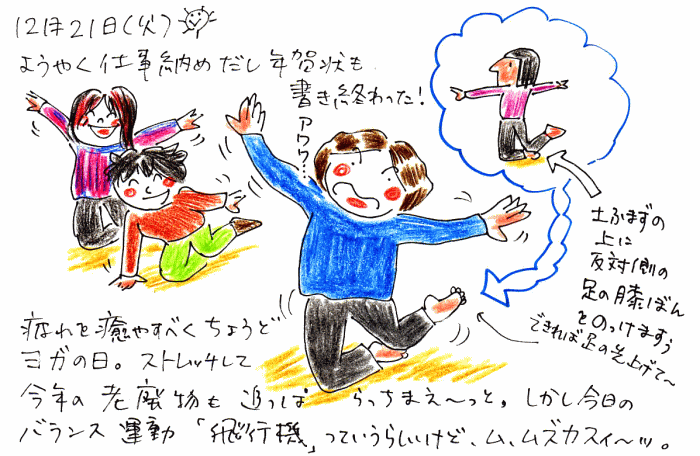 12月21日(火)
ようやく仕事納めだし年賀状も
書き終わった!
アワワ…
土ふまずの
上に
反対側の
足の膝ぼん
をのっけますぅ
できれば足の先上げて〜
疲れを癒やすべくちょうど
ヨガの日。ストレッチして
今年の老廃物も追っぱらっちまえ〜っと。しかし今日の
バランス運動「飛行機」っていうらしいけど、ム、ムズカスィ〜ッ。